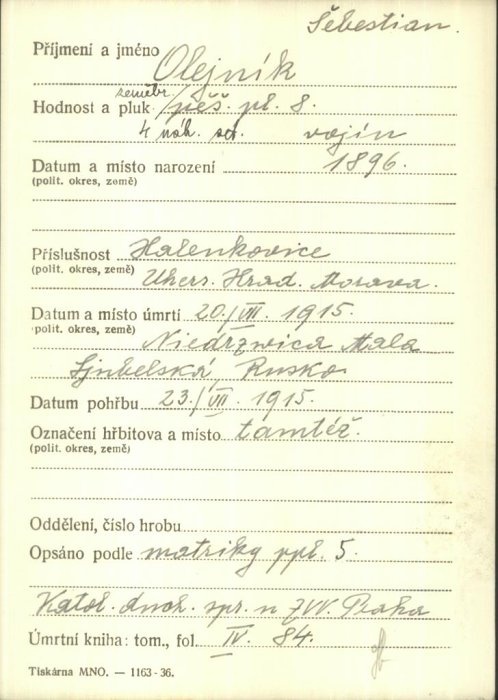 Šebestian.
Příjmení a jméno Olejník
zeměbr.
Hodnost a pluk pěš. pl. 8.
4 náh. set. vojín
Datum a místo narození 1896.
(polit. okres, země)
Příslušnost Halenkovice
(polit. okres, země) Uhers. Hrad. Morava.
Datum a místo úmrtí 20./VII. 1915.
(polit. okres, země) Niedrzwica Mala
Ljubelska, Rusko
Datum pohřbu 23./VII. 1915.
Označení hřbitova a místo tamtéž.
(polit. okres, země)
Oddělení, číslo hrobu
Opsáno podle matriky ppl. 5.
Katol. duch. spr. u ZVV. Praha
Úmrtní kniha: tom., fol. IV. 84.
Tiskárna MNO. — 1163-36.